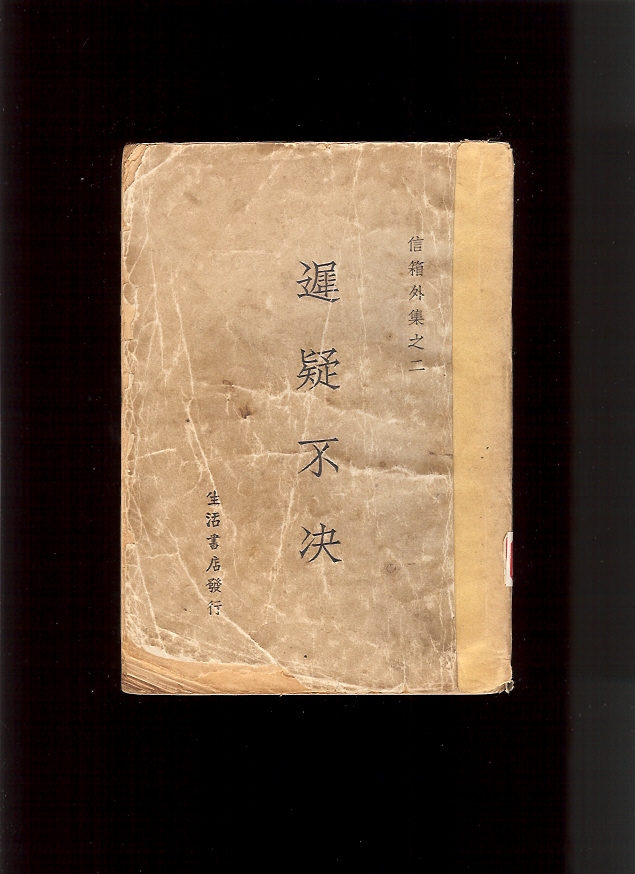 信箱外集之二
遲疑不决
生活書店發行